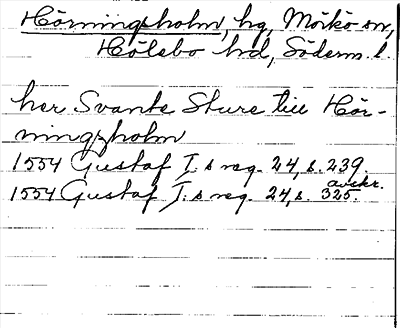 Hörningsholm, hg, Mörkö sn,
Hölebo hd, Söderm. l.
her Svante Sture till Hör-
ningzholm
1554 Gustaf I:s reg. 24, s. 239.
avskr.
1554 Gustaf I:s reg. 24, s. 325.